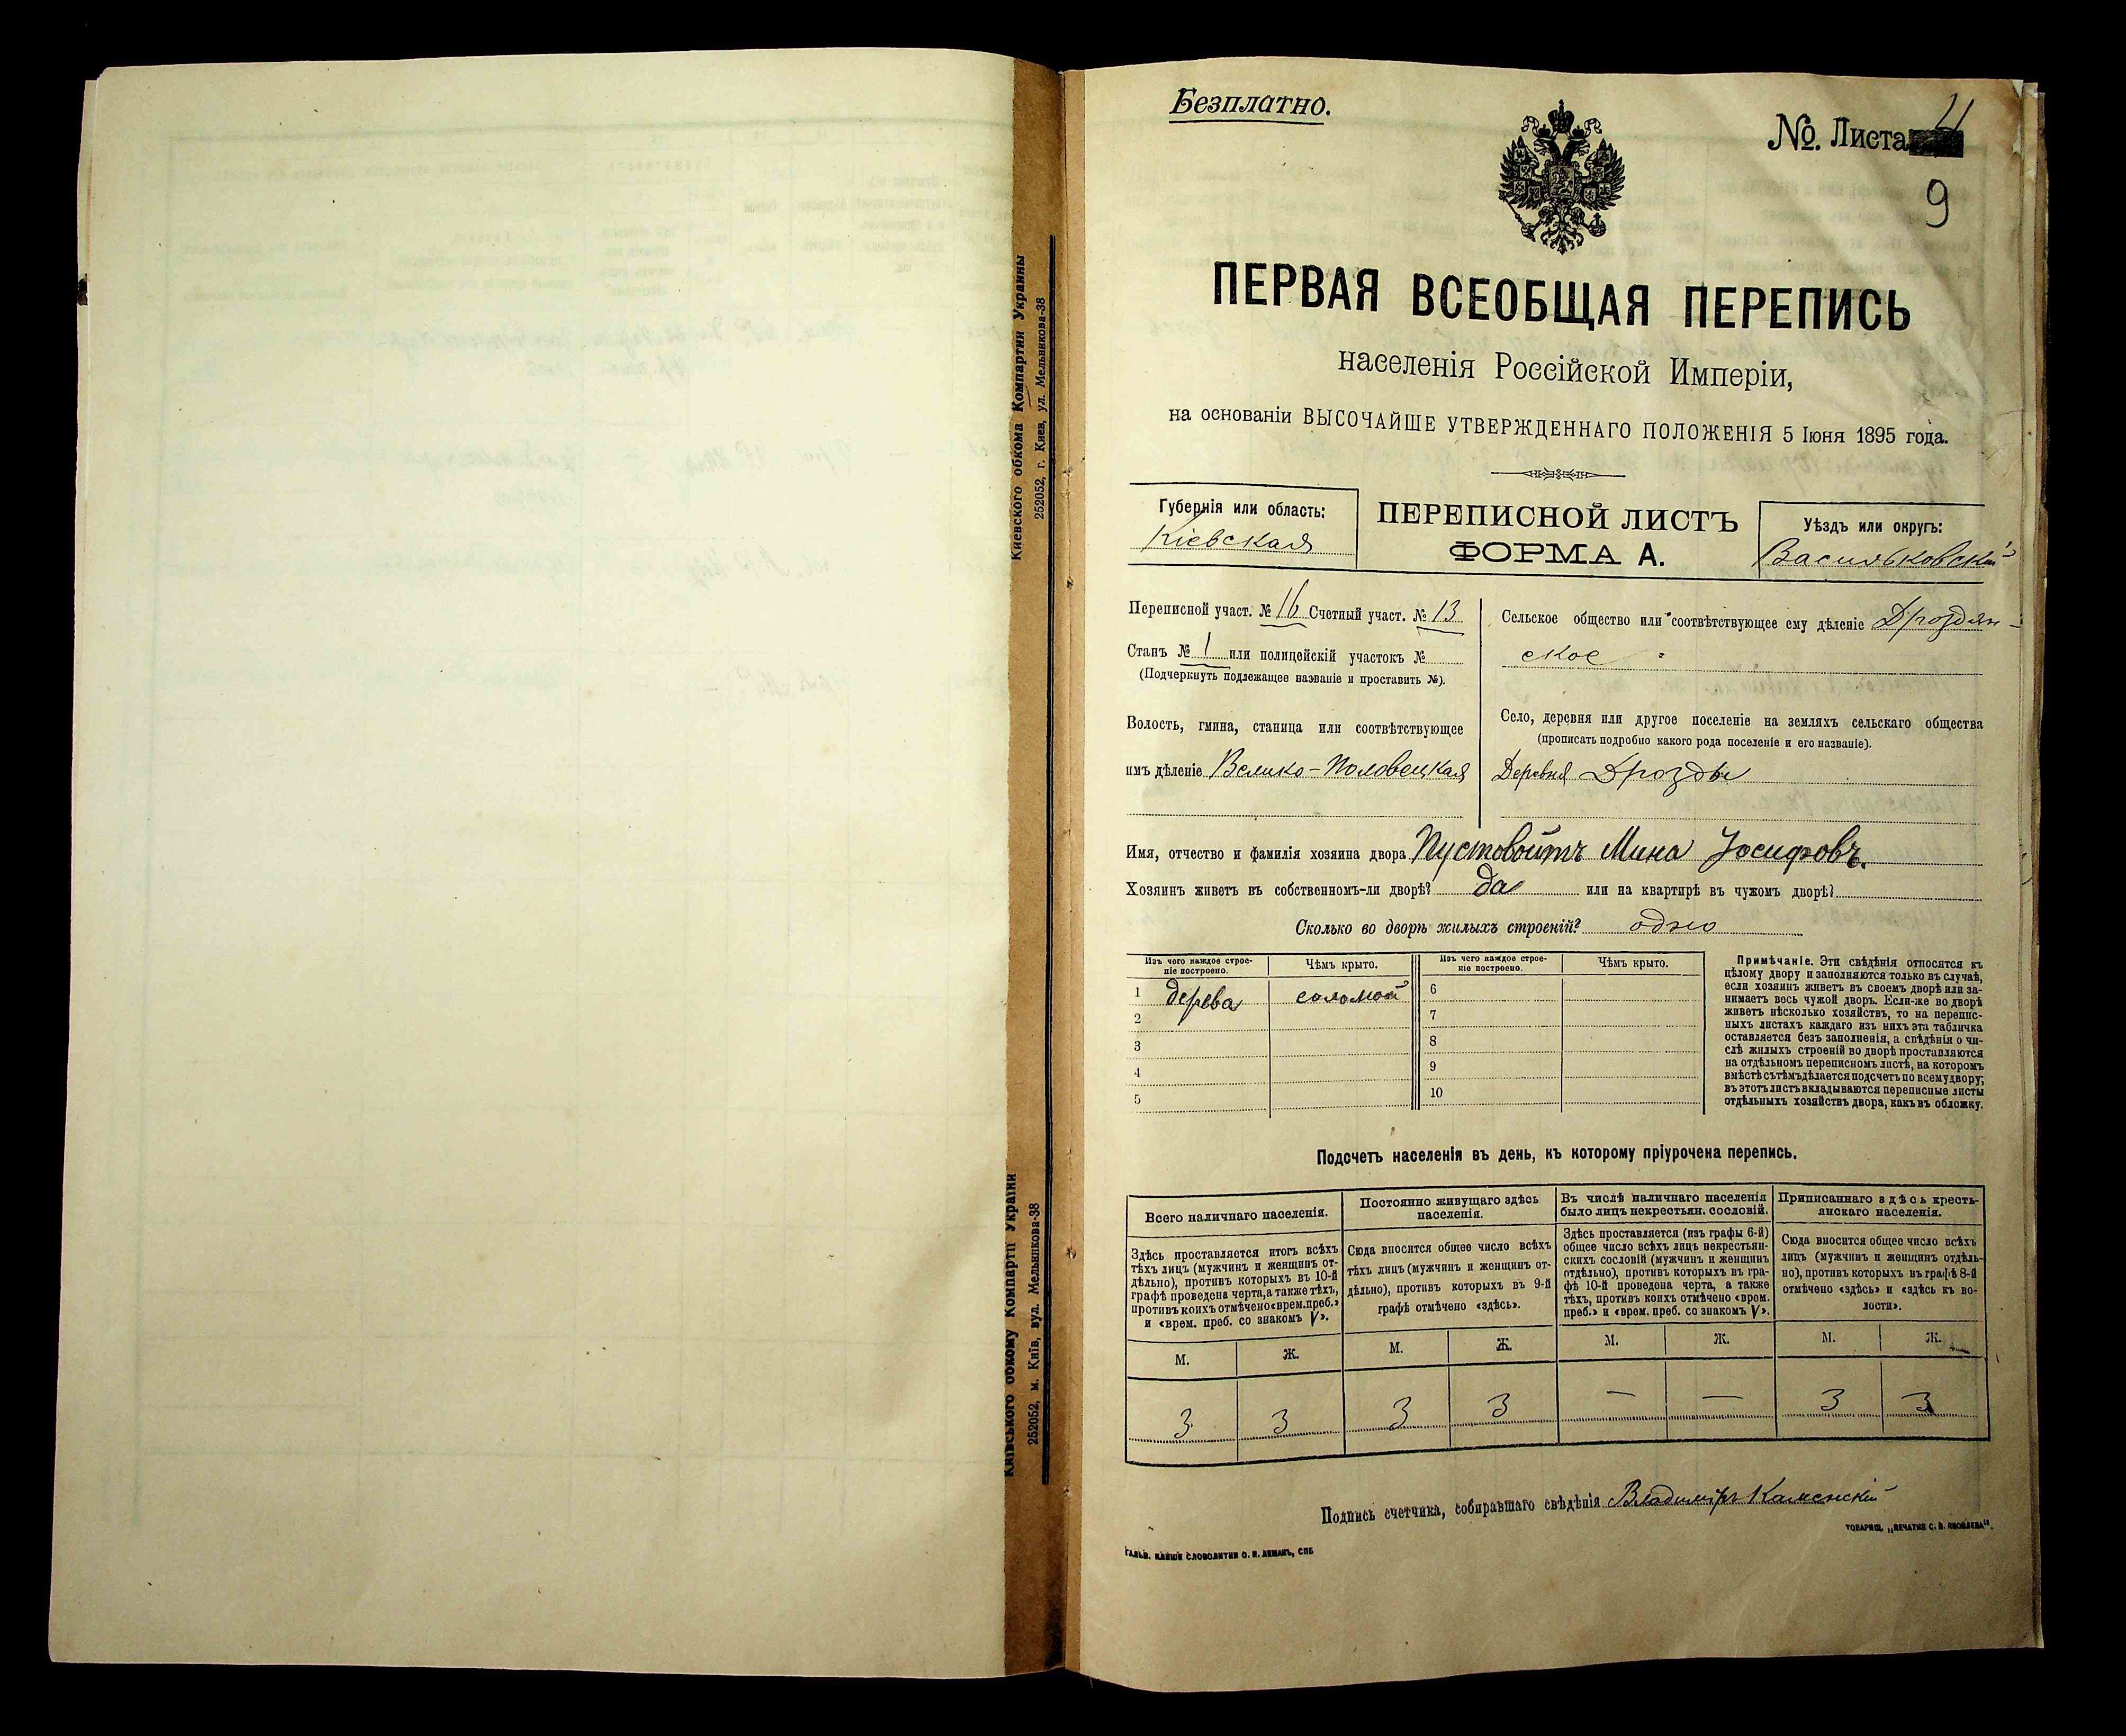 Киевского обкома Компартии Украины
252052, г. Киев, ул. Мельникова-38
Київського обкому Компартії України
252052, м. Київ, вул. Мельникова-38
Безплатно.
№. Листа 4
9
ПЕРВАЯ ВСЕОБЩАЯ ПЕРЕПИСЬ
населенія Россійской Имперіи,
на основаніи ВЫСОЧАЙШЕ УТВЕРЖДЕННАГО ПОЛОЖЕНІЯ 5 Іюня 1895 года.
Губернія или область:
Кіевская
ПЕРЕПИСНОЙ ЛИСТЪ
ФОРМА А.
Уѣздъ или округъ:
Васильковскій
Переписной участ. № 16 Счетный участ. № 13
Станъ № 1 или полицейскій участокъ №
(Подчеркнуть подлежащее названіе и проставить №).
Волость, гмина, станица или соотвѣтствующее
имъ дѣленіе Велико-Половецкая
Сельское общество или соотвѣтствующее ему дѣленіе Дроздян-
ское
Село, деревня или другое поселеніе на земляхъ сельскаго общества
(прописать подробно какого рода поселеніе и его названіе).
Деревня Дрозды
Имя, отчество и фамилія хозяина двора Пустовойтъ Мина Іосифовъ.
Хозяинъ живетъ въ собственномъ-ли дворѣ? да или на квартирѣ въ чужомъ дворѣ?
Сколько во дворѣ жилыхъ строеній? одно
Изъ чего каждое строе-
ніе построено.
Чѣмъ крыто.
Изъ чего каждое строе-
ніе построено.
Чѣмъ крыто.
1 дерева соломой 6
2 7
3 8
4 9
5 10
Примѣчаніе. Эти свѣдѣнія относятся къ
цѣлому двору и заполняются только въ случаѣ,
если хозяинъ живетъ въ своемъ дворѣ или за-
нимаетъ весь чужой дворъ. Если-же во дворѣ
живетъ нѣсколько хозяйствъ, то на перепис-
ныхъ листахъ каждаго изъ нихъ эта табличка
оставляется безъ заполненія, а свѣдѣнія о чи-
слѣ жилыхъ строеній во дворѣ проставляются
на отдѣльномъ переписномъ листѣ, на которомъ
вмѣстѣ съ тѣмъ дѣлается подсчетъ по всему двору;
въ этотъ листъ вкладываются переписные листы
отдѣльныхъ хозяйствъ двора, какъ въ обложку.
Подсчетъ населенія въ день, къ которому пріурочена перепись.
Всего наличнаго населенія.
Здѣсь проставляется итогъ всѣхъ
тѣхъ лицъ (мужчинъ и женщинъ от-
дѣльно), противъ которыхъ въ 10-й
графѣ проведена черта, а также тѣхъ,
противъ коихъ отмѣчено «врем. преб.»
и «врем. преб. со знакомъ V».
Постоянно живущаго здѣсь
населенія.
Сюда вносится общее число всѣхъ
тѣхъ лицъ (мужчинъ и женщинъ от-
дѣльно), противъ которыхъ въ 9-й
графѣ отмѣчено «здѣсь».
Въ числѣ наличнаго населенія
было лицъ некрестьян. сословій.
Здѣсь проставляется (изъ графы 6-й)
общее число всѣхъ лицъ некрестьян-
скихъ сословій (мужчинъ и женщинъ
отдѣльно), противъ которыхъ въ гра-
фѣ 10-й проведена черта, а также
тѣхъ, противъ коихъ отмѣчено «врем.
преб.» и «врем. преб. со знакомъ V».
Приписаннаго здѣсь кресть-
янскаго населенія.
Сюда вносится общее число всѣхъ
лицъ (мужчинъ и женщинъ отдѣль-
но), противъ которыхъ въ графѣ 8-й
отмѣчено «здѣсь» и «здѣсь къ во-
лости».
М. Ж. М. Ж. М. Ж. М. Ж.
3 3 3 3 — — 3 3
Подпись счетчика, собиравшаго свѣдѣнія Владиміръ Каменскій
ГАЛЬВ. КЛИШЕ СЛОВОЛИТНИ О. И. ЛЕМАНЪ, СПБ
ТОВАРИЩ. „ПЕЧАТНЯ С. П. ЯКОВЛЕВА“.